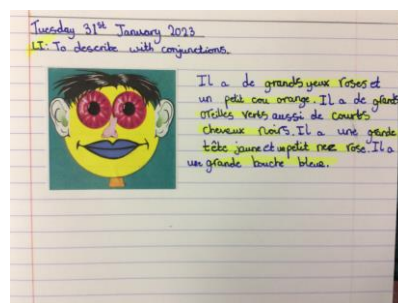 Tuesday 31st January 2023
LI: To describe with conjunctions.
Il a de grands yeux roses et
un petit cou orange. Il a de grands
oreilles verts aussi de courts
cheveux noirs. Il a une grande
tête jaune et un petit nez rose. Il a
une grande bouche bleue.